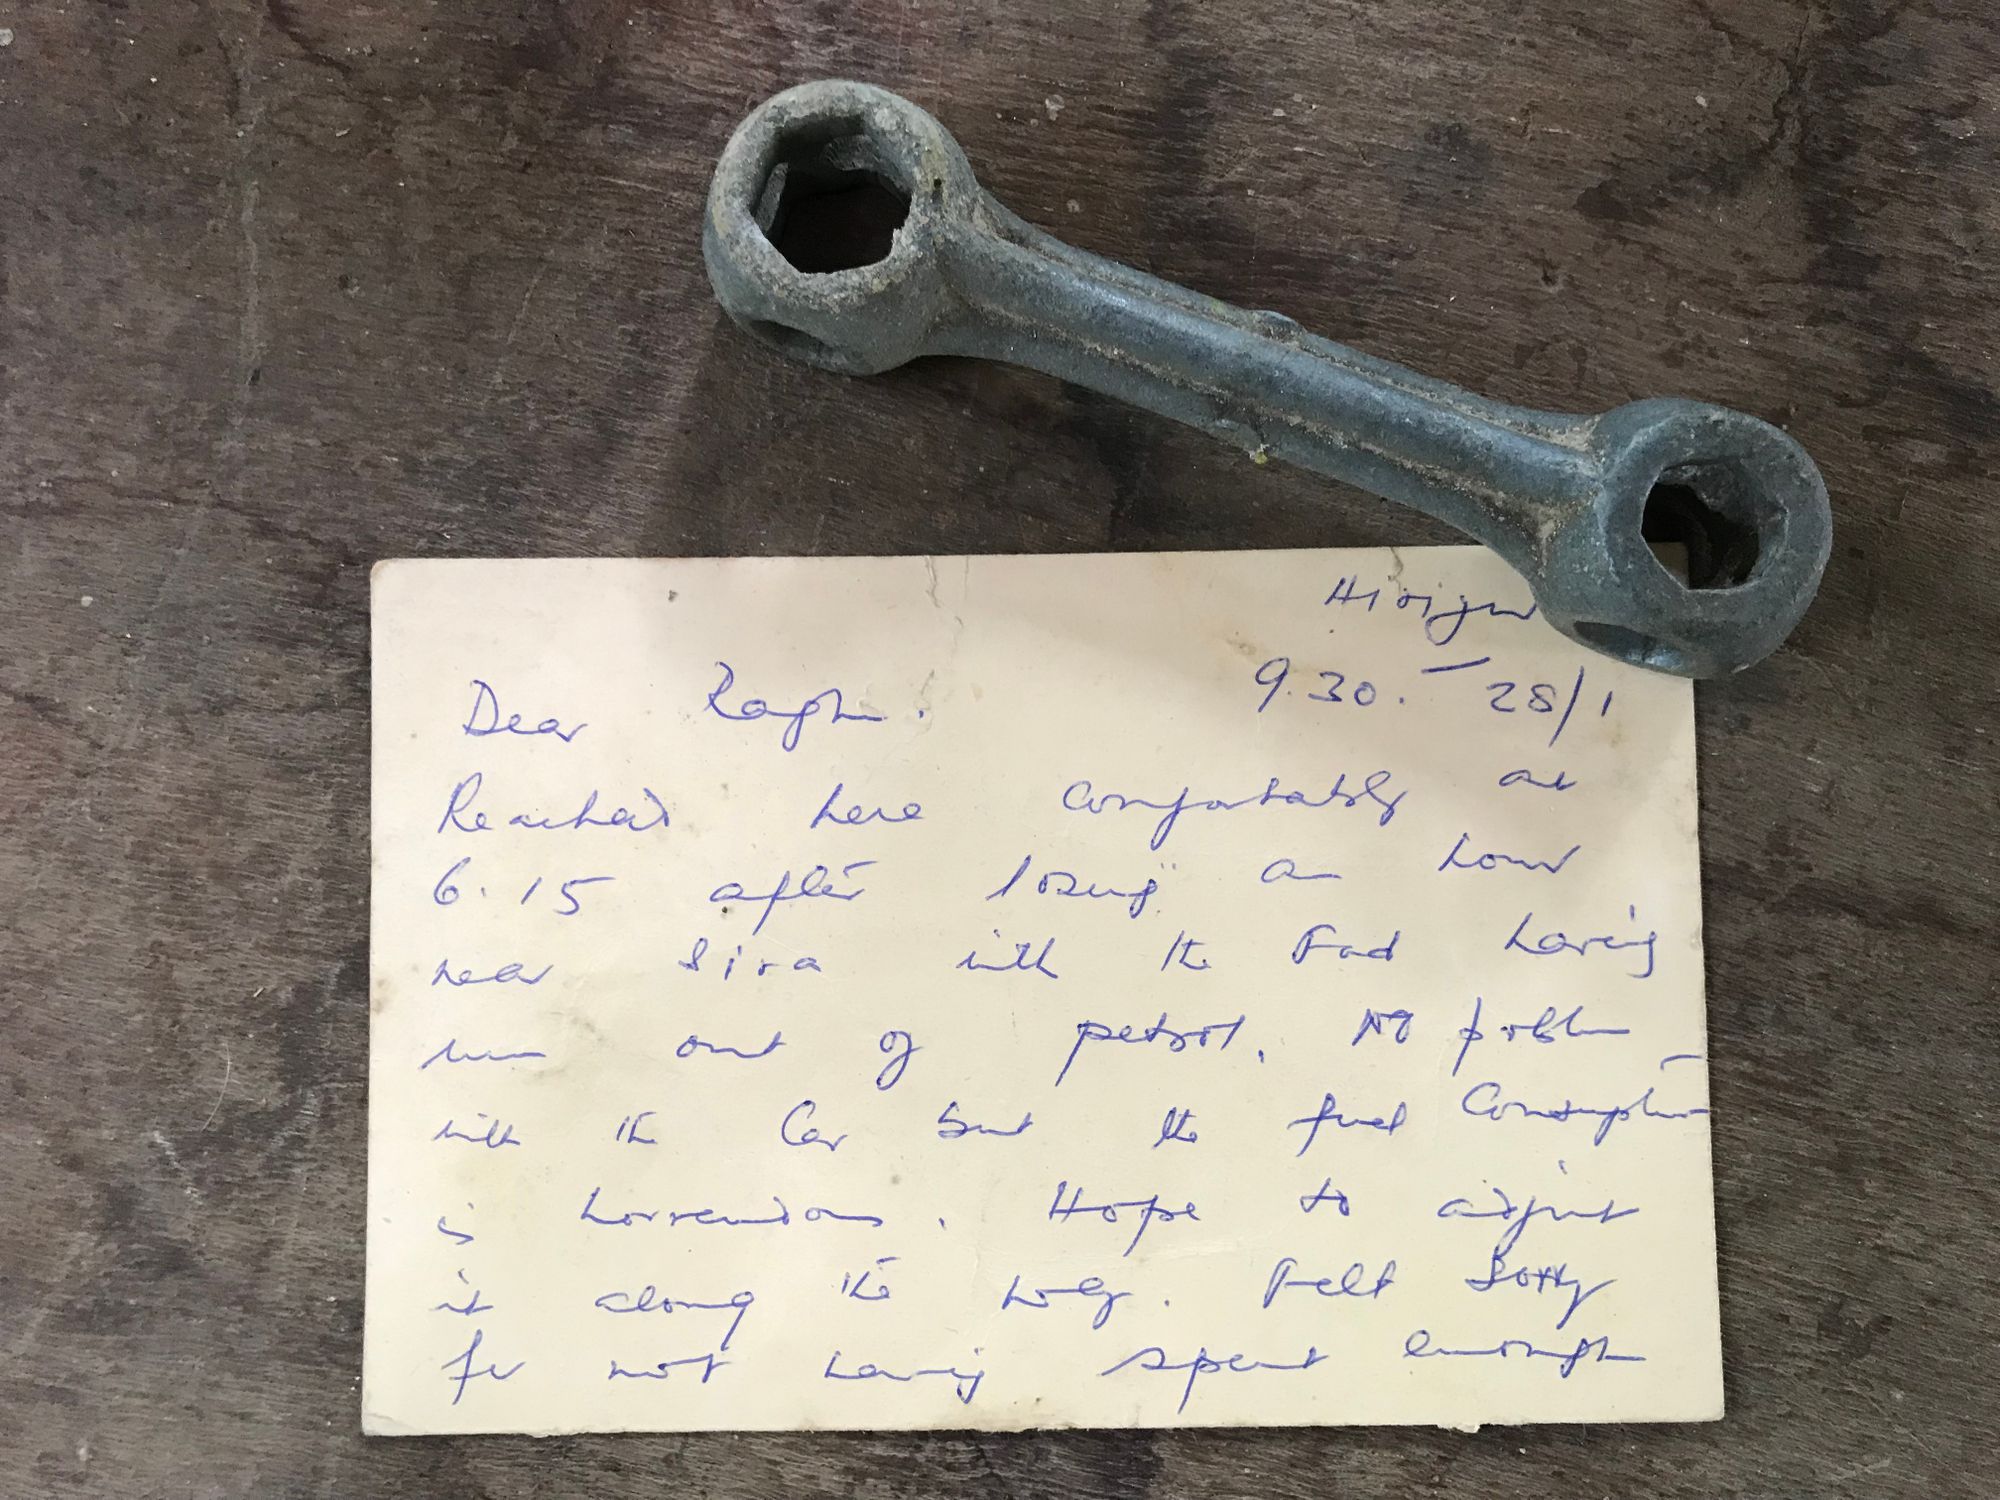 Hiriyur
9.30. – 28/1
Dear Raghu.
Reached here comfortably at
6.15 after losing an hour
near Sira with the Ford having
run out of petrol. No problem
with the Car but the fuel Consumption
is horrendous. Hope to adjust
it along the way. Felt Sorry
for not having spent enough